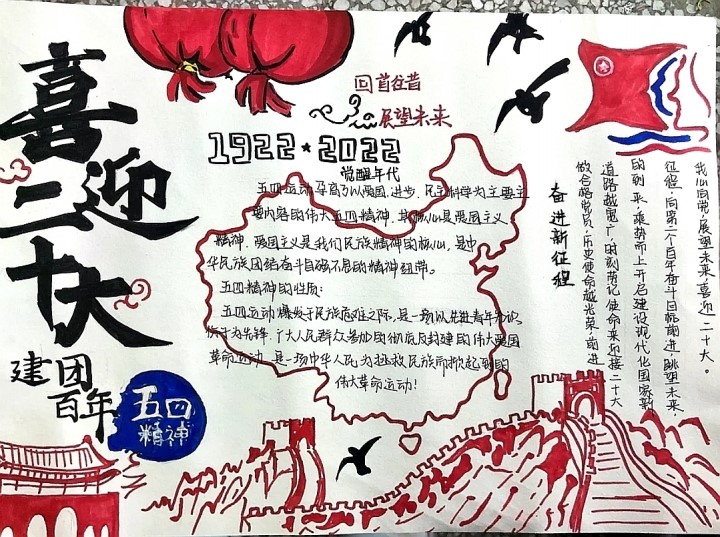 喜迎
二十大
建团
百年
五四
精神
回首往昔
展望未来
1922★2022
觉醒年代
五四运动孕育了以爱国、进步、民主科学为主要主
要内容的伟大五四精神，其核心是爱国主义
精神，爱国主义是我们民族精神的核心，是中
华民族团结奋斗自强不息的精神纽带。
五四精神的性质：
五四运动爆发于民族危难之际，是一场以先进青年知识
份子为先锋，广大人民群众参加的彻底反封建的伟大爱国
革命运动，是一场中华人民为拯救民族而掀起到的
伟大革命运动！
我心向党，展望未来喜迎二十大。
征程，向第二个百年奋斗目标前进，跳望未来，
的到来，乘势而上开启建设现代化国家新
道路越宽广，时刻牢记使命来迎接二十大
做合格党员，历史使命越光荣，前进
奋进新征程